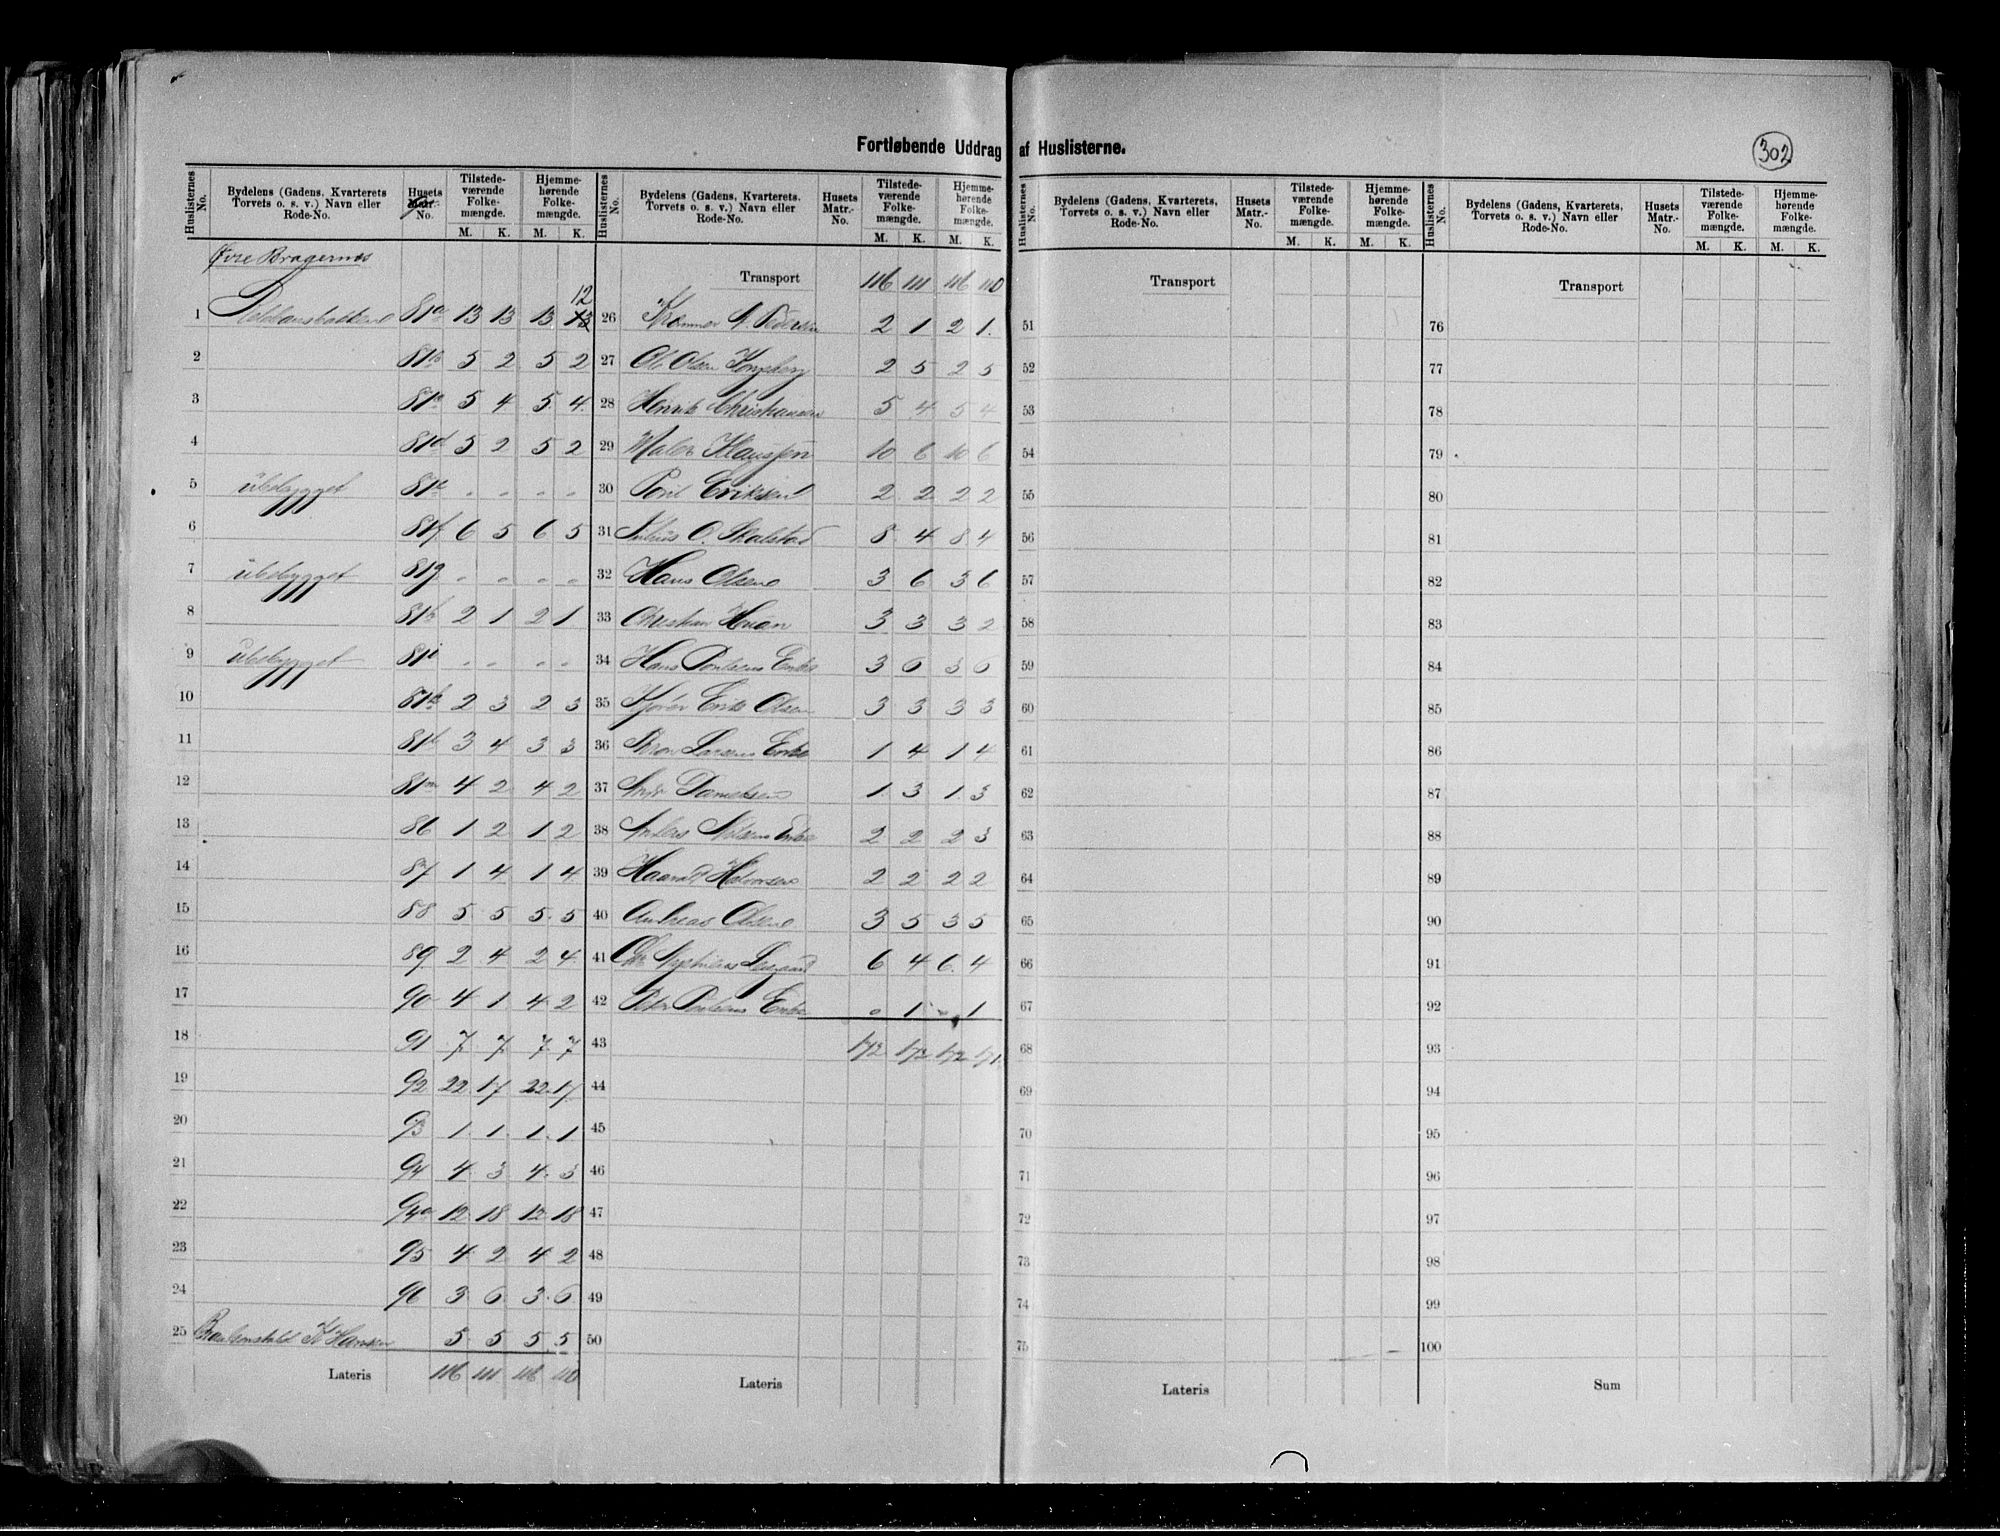 Fortløbende Uddrag af Huslisterne.
302
Huslisternes No. Bydelens (Gadens, Kvarterets Torvets o. s. v.) Navn eller Rode-No. Husets Matr.-No. Tilstedeværende Folkemængde. M. K. Hjemmehørende Folkemængde. M. K.
Øvre Bragernæs
12
1 81a 13 13 13 13
2 81b 5 2 5 2
3 81c 5 4 5 4
4 81d 5 2 5 2
5 ubebygget 81e " " " "
6 81f 6 5 6 5
7 ubebygget 81g " " " "
8 81h 2 1 2 1
9 ubebygget 81i " " " "
10 81k 2 3 2 3
11 81l 3 4 3 3
12 81m 4 2 4 2
13 86 1 2 1 2
14 87 1 4 1 4
15 88 5 5 5 5
16 89 2 4 2 4
17 90 4 1 4 2
18 91 7 7 7 7
19 92 22 17 22 17
20 93 1 1 1 1
21 94 4 3 4 3
22 94a 12 18 12 18
23 95 4 2 4 2
24 96 3 6 3 6
25 Hansen 5 5 5 5
Lateris 116 111 116 110
Huslisternes No. Bydelens (Gadens, Kvarterets, Torvets o. s. v.) Navn eller Rode-No. Husets Matr.-No. Tilstedeværende Folkemængde. M. K. Hjemmehørende Folkemængde. M. K.
Transport 116 111 116 110
26 Pedersen 2 1 2 1
27 Ole Olsen Kongsberg 2 5 2 5
28 Henrik Christiansen 5 4 5 4
29 Maler Klaussen 10 6 10 6
30 Poul Eriksen 2 2 2 2
31 Julius O. Skalstad 8 4 8 4
32 Hans Olsen 3 6 3 6
33 Christian Hvian 3 3 3 2
34 Hans Poulsens Enke 3 6 3 6
35 Erik Olsen 3 3 3 3
36 Larsens Enke 1 4 1 4
37 Danielsen 1 3 1 3
38 Anders Nilsens Enke 2 2 2 3
39 Halvorsen 2 2 2 2
40 Andreas Olsen 3 5 3 5
41 6 4 6 4
42 Peter Poulsens Enke " 1 " 1
43 172 172 172 171
44
45
46
47
48
49
50
Lateris
Huslisternes No. Bydelens (Gadens, Kvarterets, Torvets o. s. v.) Navn eller Rode-No. Husets Matr.-No. Tilstedeværende Folkemængde. M. K. Hjemmehørende Folkemængde. M. K.
Transport
51
52
53
54
55
56
57
58
59
60
61
62
63
64
65
66
67
68
69
70
71
72
73
74
75
Lateris
Huslisternes No. Bydelens (Gadens, Kvarterets, Torvets o. s. v.) Navn eller Rode-No. Husets Matr.-No. Tilstedeværende Folkemængde. M. K. Hjemmehørende Folkemængde. M. K.
Transport
76
77
78
79
80
81
82
83
84
85
86
87
88
89
90
91
92
93
94
95
96
97
98
99
100
Sum